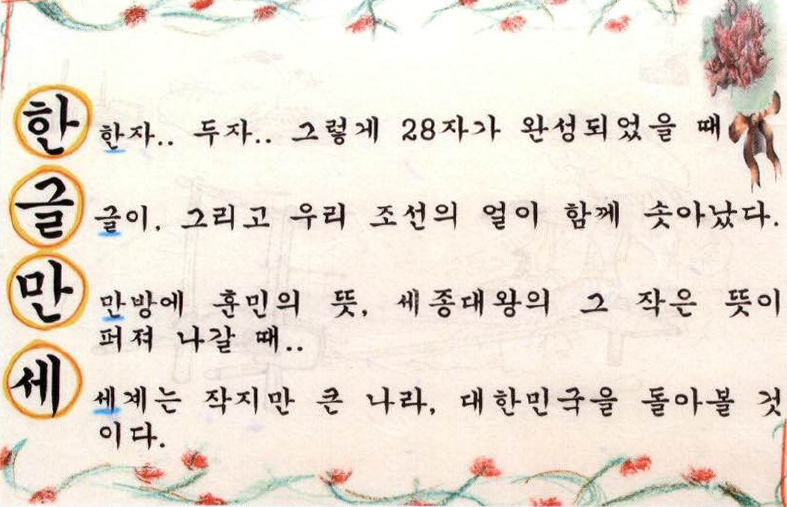 한 한자.. 두자.. 그렇게 28자가 완성되었을 때
글 글이, 그리고 우리 조선의 얼이 함께 솟아났다.
만 만방에 훈민의 뜻, 세종대왕의 그 작은 뜻이
퍼져 나갈 때..
세 세계는 작지만 큰 나라, 대한민국을 돌아볼 것
이다.